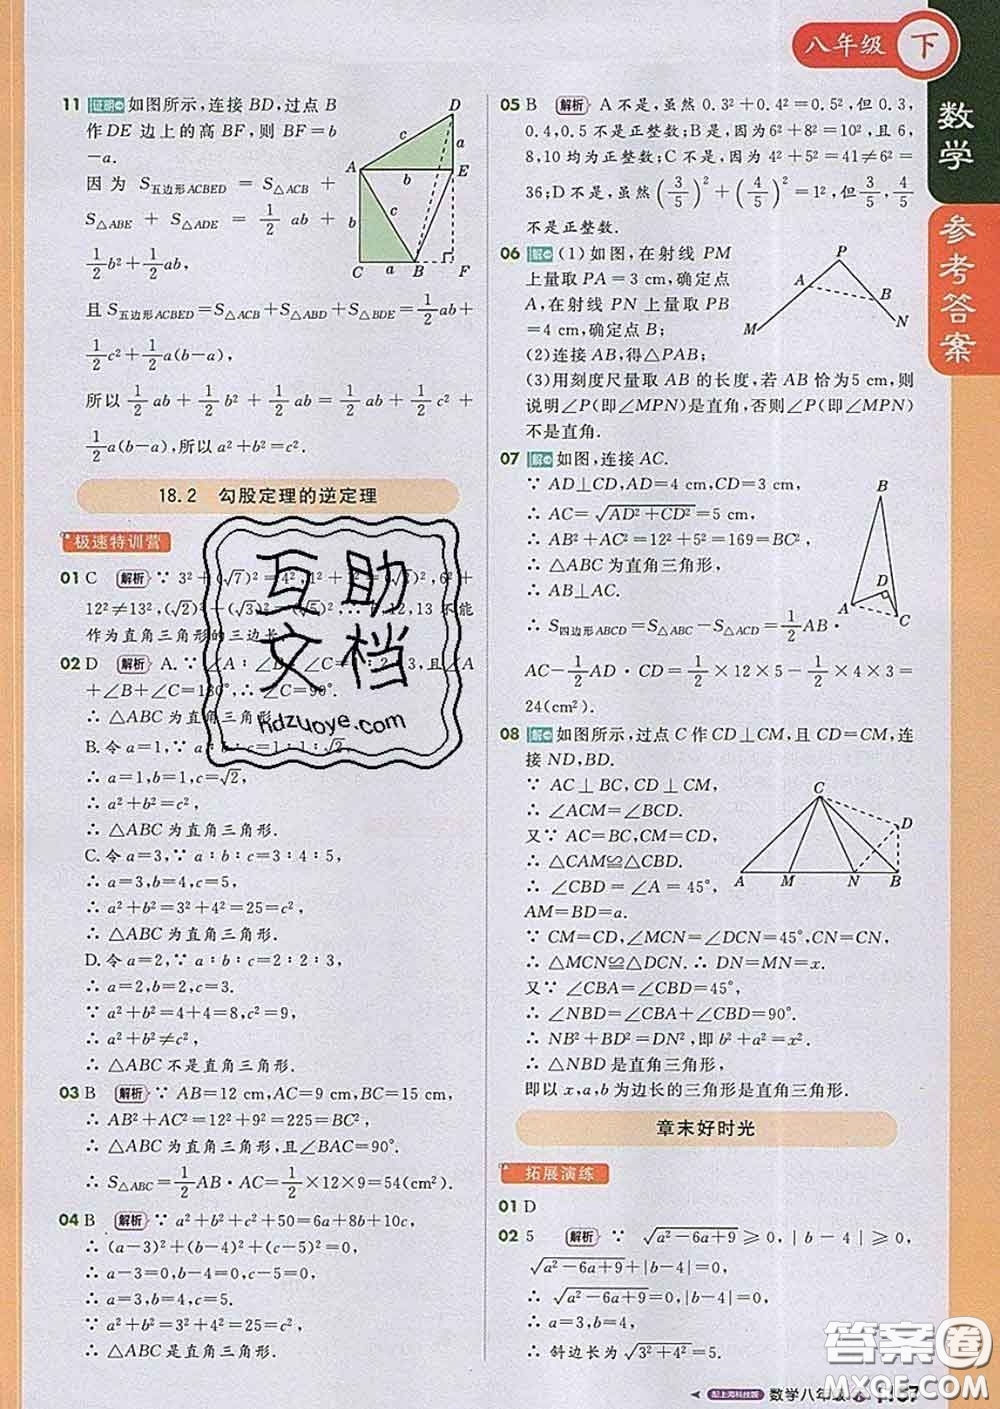 八年级 下
数学
参考答案
11 证明 如图所示,连接 BD,过点 B
作 DE 边上的高 BF,则 BF=b
-a.
因为 S五边形ACBED = S△ACB +
S△ABE + S△ADE = 1/2 ab +
1/2 b²+1/2 ab,
且 S五边形ACBED=S△ACB+S△ABD+S△BDE=1/2 ab+
1/2 c²+1/2 a(b-a),
所以 1/2 ab + 1/2 b² + 1/2 ab = 1/2 ab + 1/2 c² +
1/2 a(b-a),所以 a²+b²=c².
D
c
A
b
E
b
c
C
a
B
F
18.2 勾股定理的逆定理
极速特训营
01 C 解析 ∵ 3²+(√7)²=4²,1²+1²=(√2)²,6²+
12²≠13²,(√2)²+(√3)²=(√5)²,∴ 6,12,13 不能
作为直角三角形的三边长.
02 D 解析 A.∵ ∠A∶∠B∶∠C=1∶2∶3,且∠A
+∠B+∠C=180°,∴ ∠C=90°.
∴ △ABC 为直角三角形.
B.令 a=1,∵ a∶b∶c=1∶1∶√2,
∴ a=1,b=1,c=√2,
∴ a²+b²=c²,
∴ △ABC 为直角三角形.
C.令 a=3,∵ a∶b∶c=3∶4∶5,
∴ a=3,b=4,c=5.
∴ a²+b²=3²+4²=25=c²,
∴ △ABC 为直角三角形.
D.令 a=2,∵ a∶b∶c=2∶2∶3,
∴ a=2,b=2,c=3.
∵ a²+b²=4+4=8,c²=9,
∴ a²+b²≠c²,
∴ △ABC 不是直角三角形.
03 B 解析 ∵ AB=12 cm,AC=9 cm,BC=15 cm,
∴ AB²+AC²=12²+9²=225=BC²,
∴ △ABC 为直角三角形,且∠BAC=90°.
∴ S△ABC=1/2 AB·AC=1/2×12×9=54(cm²).
04 B 解析 ∵ a²+b²+c²+50=6a+8b+10c,
∴ (a-3)²+(b-4)²+(c-5)²=0,
∴ a-3=0,b-4=0,c-5=0,
∴ a=3,b=4,c=5.
∵ a²+b²=3²+4²=25=c²,
∴ △ABC 是直角三角形.
05 B 解析 A 不是,虽然 0.3²+0.4²=0.5²,但 0.3,
0.4,0.5 不是正整数;B 是,因为6²+8²=10²,且 6,
8,10 均为正整数;C 不是,4²+5²=41≠6²=
36;D 不是,虽然(3/5)²+(4/5)²=1²,但3/5,4/5
不是正整数.
06 解 (1)如图,在射线 PM
上量取 PA=3 cm,确定点
A,在射线 PN 上量取 PB
=4 cm,确定点 B;
(2)连接 AB,得△PAB;
(3)用刻度尺量取 AB 的长度,若 AB 恰为5 cm,则
说明∠P(即∠MPN)是直角,否则∠P(即∠MPN)
不是直角.
P
A
B
M
N
07 解 如图,连接 AC.
∵ AD⊥CD,AD=4 cm,CD=3 cm,
∴ AC=√AD²+CD²=5 cm.
∴ AB²+AC²=12²+5²=169=BC²,
∴ △ABC 为直角三角形,
∴ AB⊥AC.
∴ S四边形ABCD=S△ABC-S△ACD=1/2 AB·
AC-1/2 AD·CD=1/2×12×5-1/2×4×3=
24(cm²).
B
D
A
C
08 解 如图所示,过点 C 作CD⊥CM,且 CD=CM,连
接 ND,BD.
∵ AC⊥BC,CD⊥CM,
∴ ∠ACM=∠BCD.
又∵ AC=BC,CM=CD,
∴ △CAM≌△CBD.
∴ ∠CBD=∠A=45°,
AM=BD=a.
∵ CM=CD,∠MCN=∠DCN=45°,CN=CN,
∴ △MCN≌△DCN. ∴ DN=MN=x.
又∵ ∠CBA=∠CBD=45°,
∴ ∠NBD=∠CBA+∠CBD=90°.
∴ NB²+BD²=DN²,即 b²+a²=x².
∴ △NBD 是直角三角形,
即以 x,a,b 为边长的三角形是直角三角形.
C
D
A
M
N
B
章末好时光
拓展演练
01 D
02 5 解析 ∵ √a²-6a+9 ≥ 0,|b-4| ≥ 0,
√a²-6a+9+|b-4|=0,
∴ √a²-6a+9=0,|b-4|=0,
∴ a=3,b=4,
∴ 斜边长为√3²+4²=5.
配上海科技版 数学八年级
互助
文档
hdzuoye.com
答案圈
MXQE.COM